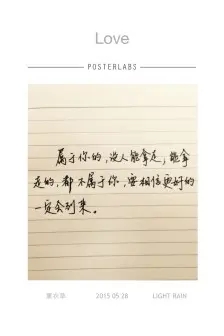 Love
POSTERLABS
属于你的，没人能拿走，能拿
走的，都不属于你，要相信更好的
一定会到来。
2015 05 28 LIGHT RAIN